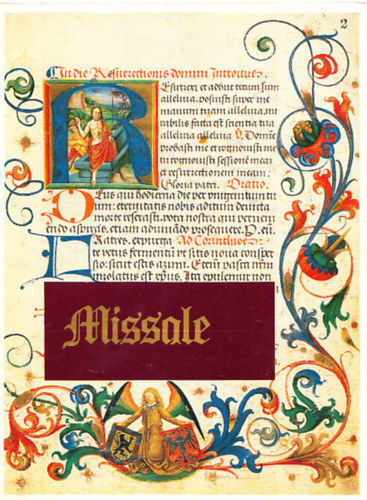 2
In die Resurrectionis domini Introitus.
Esurrexi et adhuc tecum sum
alleluia. posuisti super me
manum tuam alleluia. mi
rabilis facta est scientia tua
alleluia alleluia. V. Domine
probasti me et cognouisti me
tu cognouisti sessionem meam
et resurrectionem meam.
Gloria patri. Oratio.
Deus qui hodierna die per vnigenitum tu
um: eternitatis nobis aditum deuicta
morte reserasti. vota nostra que preueni
endo aspiras. etiam adiuuando prosequere. P. eū.
Fratres. expurgate Ad Corinthios
te vetus fermentū vt sitis noua consper
sio: sicut estis azimi. Etenī pascha nrm
immolatus est xp̄us. Itaq epulemur non
Missale